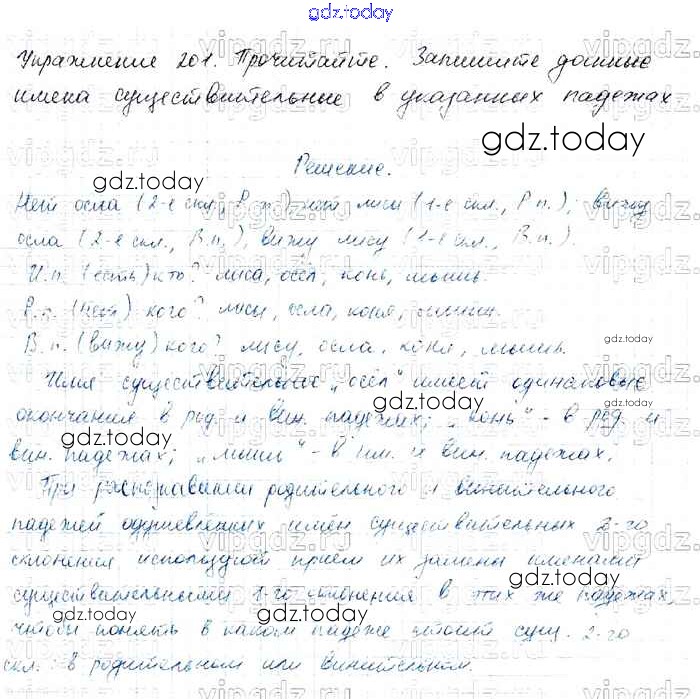 gdz.today
Упражнение 201. Прочитайте. Запишите данные
имена существительные в указанных падежах
gdz.today
Решение.
gdz.today
Нет осла (2-е скл., Р.п.), нет лисы (1-е скл., Р.п.), вижу
осла (2-е скл., В.п.), вижу лису (1-е скл., В.п.).
И.п. (есть) кто? лиса, осёл, конь, мышь.
Р.п. (нет) кого? лисы, осла, коня, мыши.
В.п. (вижу) кого? лису, осла, коня, мышь.
gdz.today
Имя существительное "осёл" имеет одинаковые
окончания в род. и вин. падежах; "конь" - в род. и
gdz.today
gdz.today
вин. падежах; "мышь" - в им. и вин. падежах.
При распознавании родительного и винительного
gdz.today
падежей одушевлённых имён существительных 2-го
склонения используют приём их замены именами
gdz.today
существительными 1-го склонения в этих же падежах,
gdz.today
чтобы понять в каком падеже стоит сущ. 2-го
скл.: в родительном или винительном.
gdz.today
vipgdz.ru